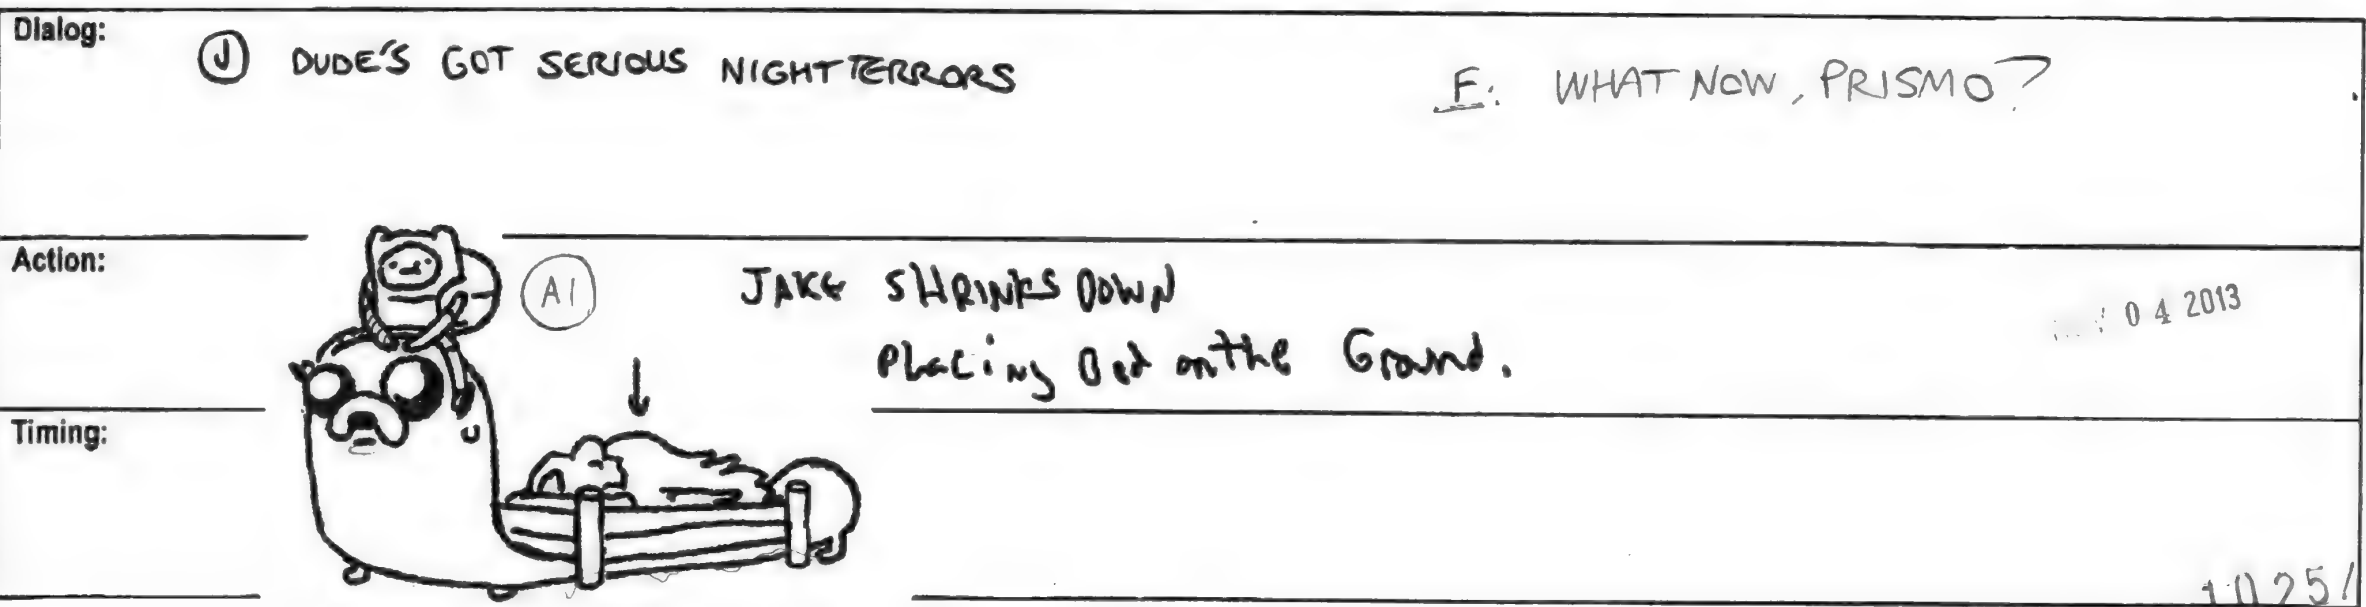 Dialog:
Ⓙ DUDE'S GOT SERIOUS NIGHT TERRORS
F: WHAT NOW, PRISMO?
Action:
A1
JAKE SHRINKS DOWN
Placing Bed on the Ground.
04 2013
Timing: